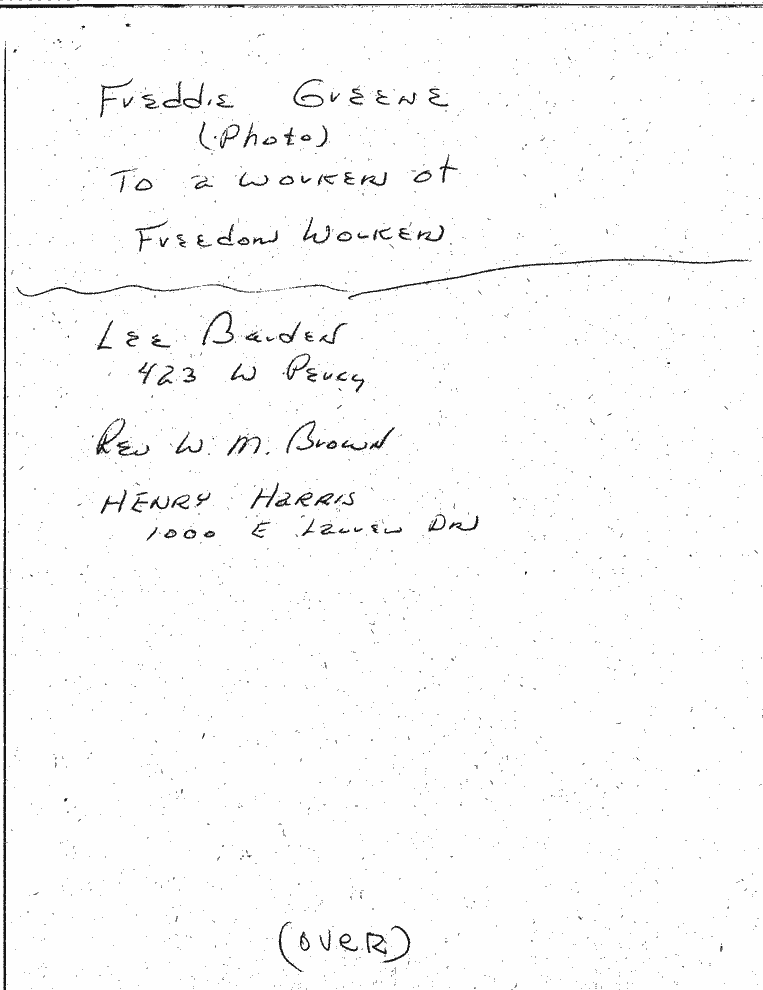 Freddie Greene
(Photo)
To a worker of
Freedom Worker
Lee Barden
423 W Percy
Rev W. M. Brown
HENRY HARRIS
1000 E Lauren Dr
(OVER)